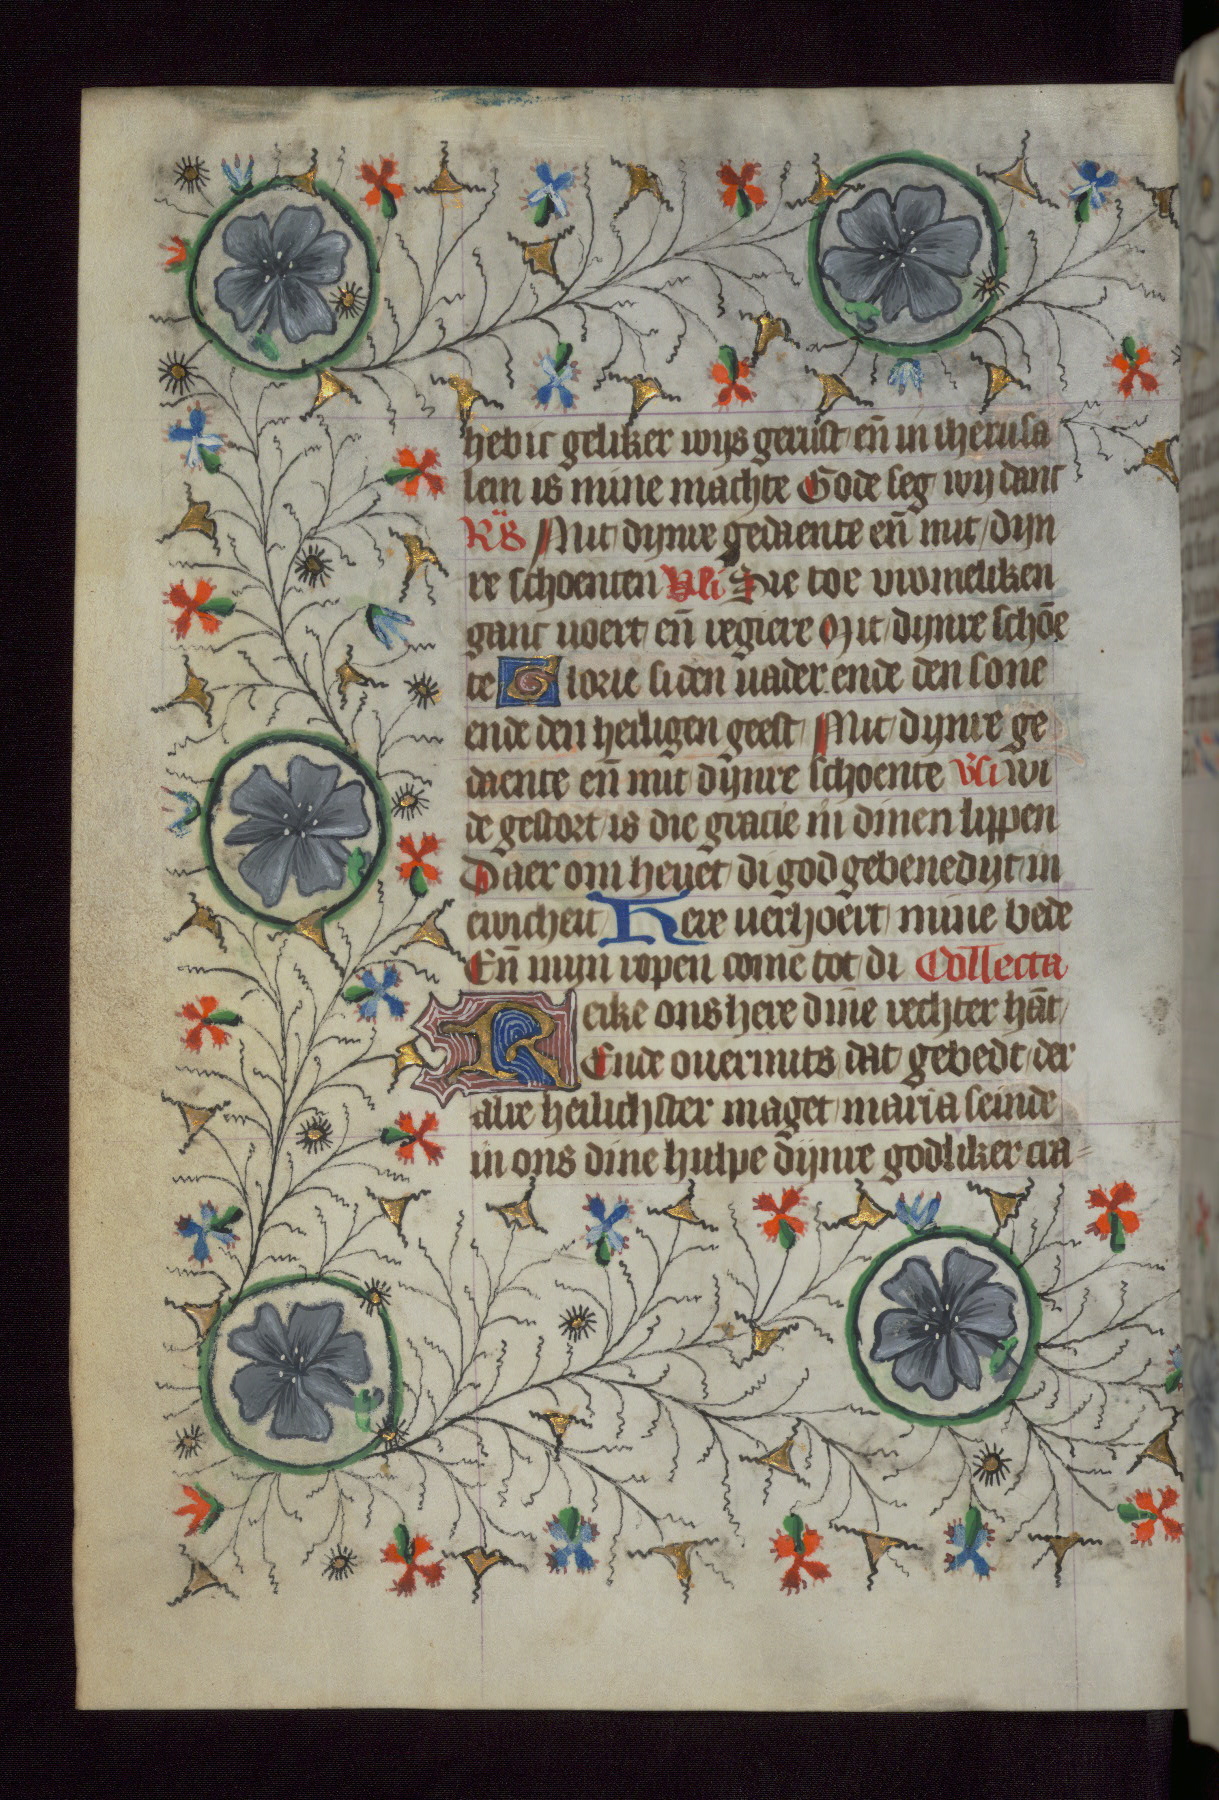 heb ic geliker wijs gerust en̄ in iherusa
lem is mine machte Gode seg wij danc
R̄s̄ Mit dijnre gedaente en̄ mit dijn
re schoenten V̄s̄i Sie toe vromeliken
ganc voert en̄ regiere Mit dijnre schoē
te Glorie si den vader ende den sone
ende den heiligen geest Mit dijnre ge
daente en̄ mit dijnre schoente V̄s̄i wt
ge gestort is die gracie in dinen lippen
Daer om heuet di god gebenedijt in
ewicheit Here verhoert mine bede
En̄ mijn ropen come tot di Collecta
Reike ons here dine rechter hāt
Ende ouermits dat gebedt der
alre heilichster maget maria seinde
in ons dine hulpe dijnre godliker cra-